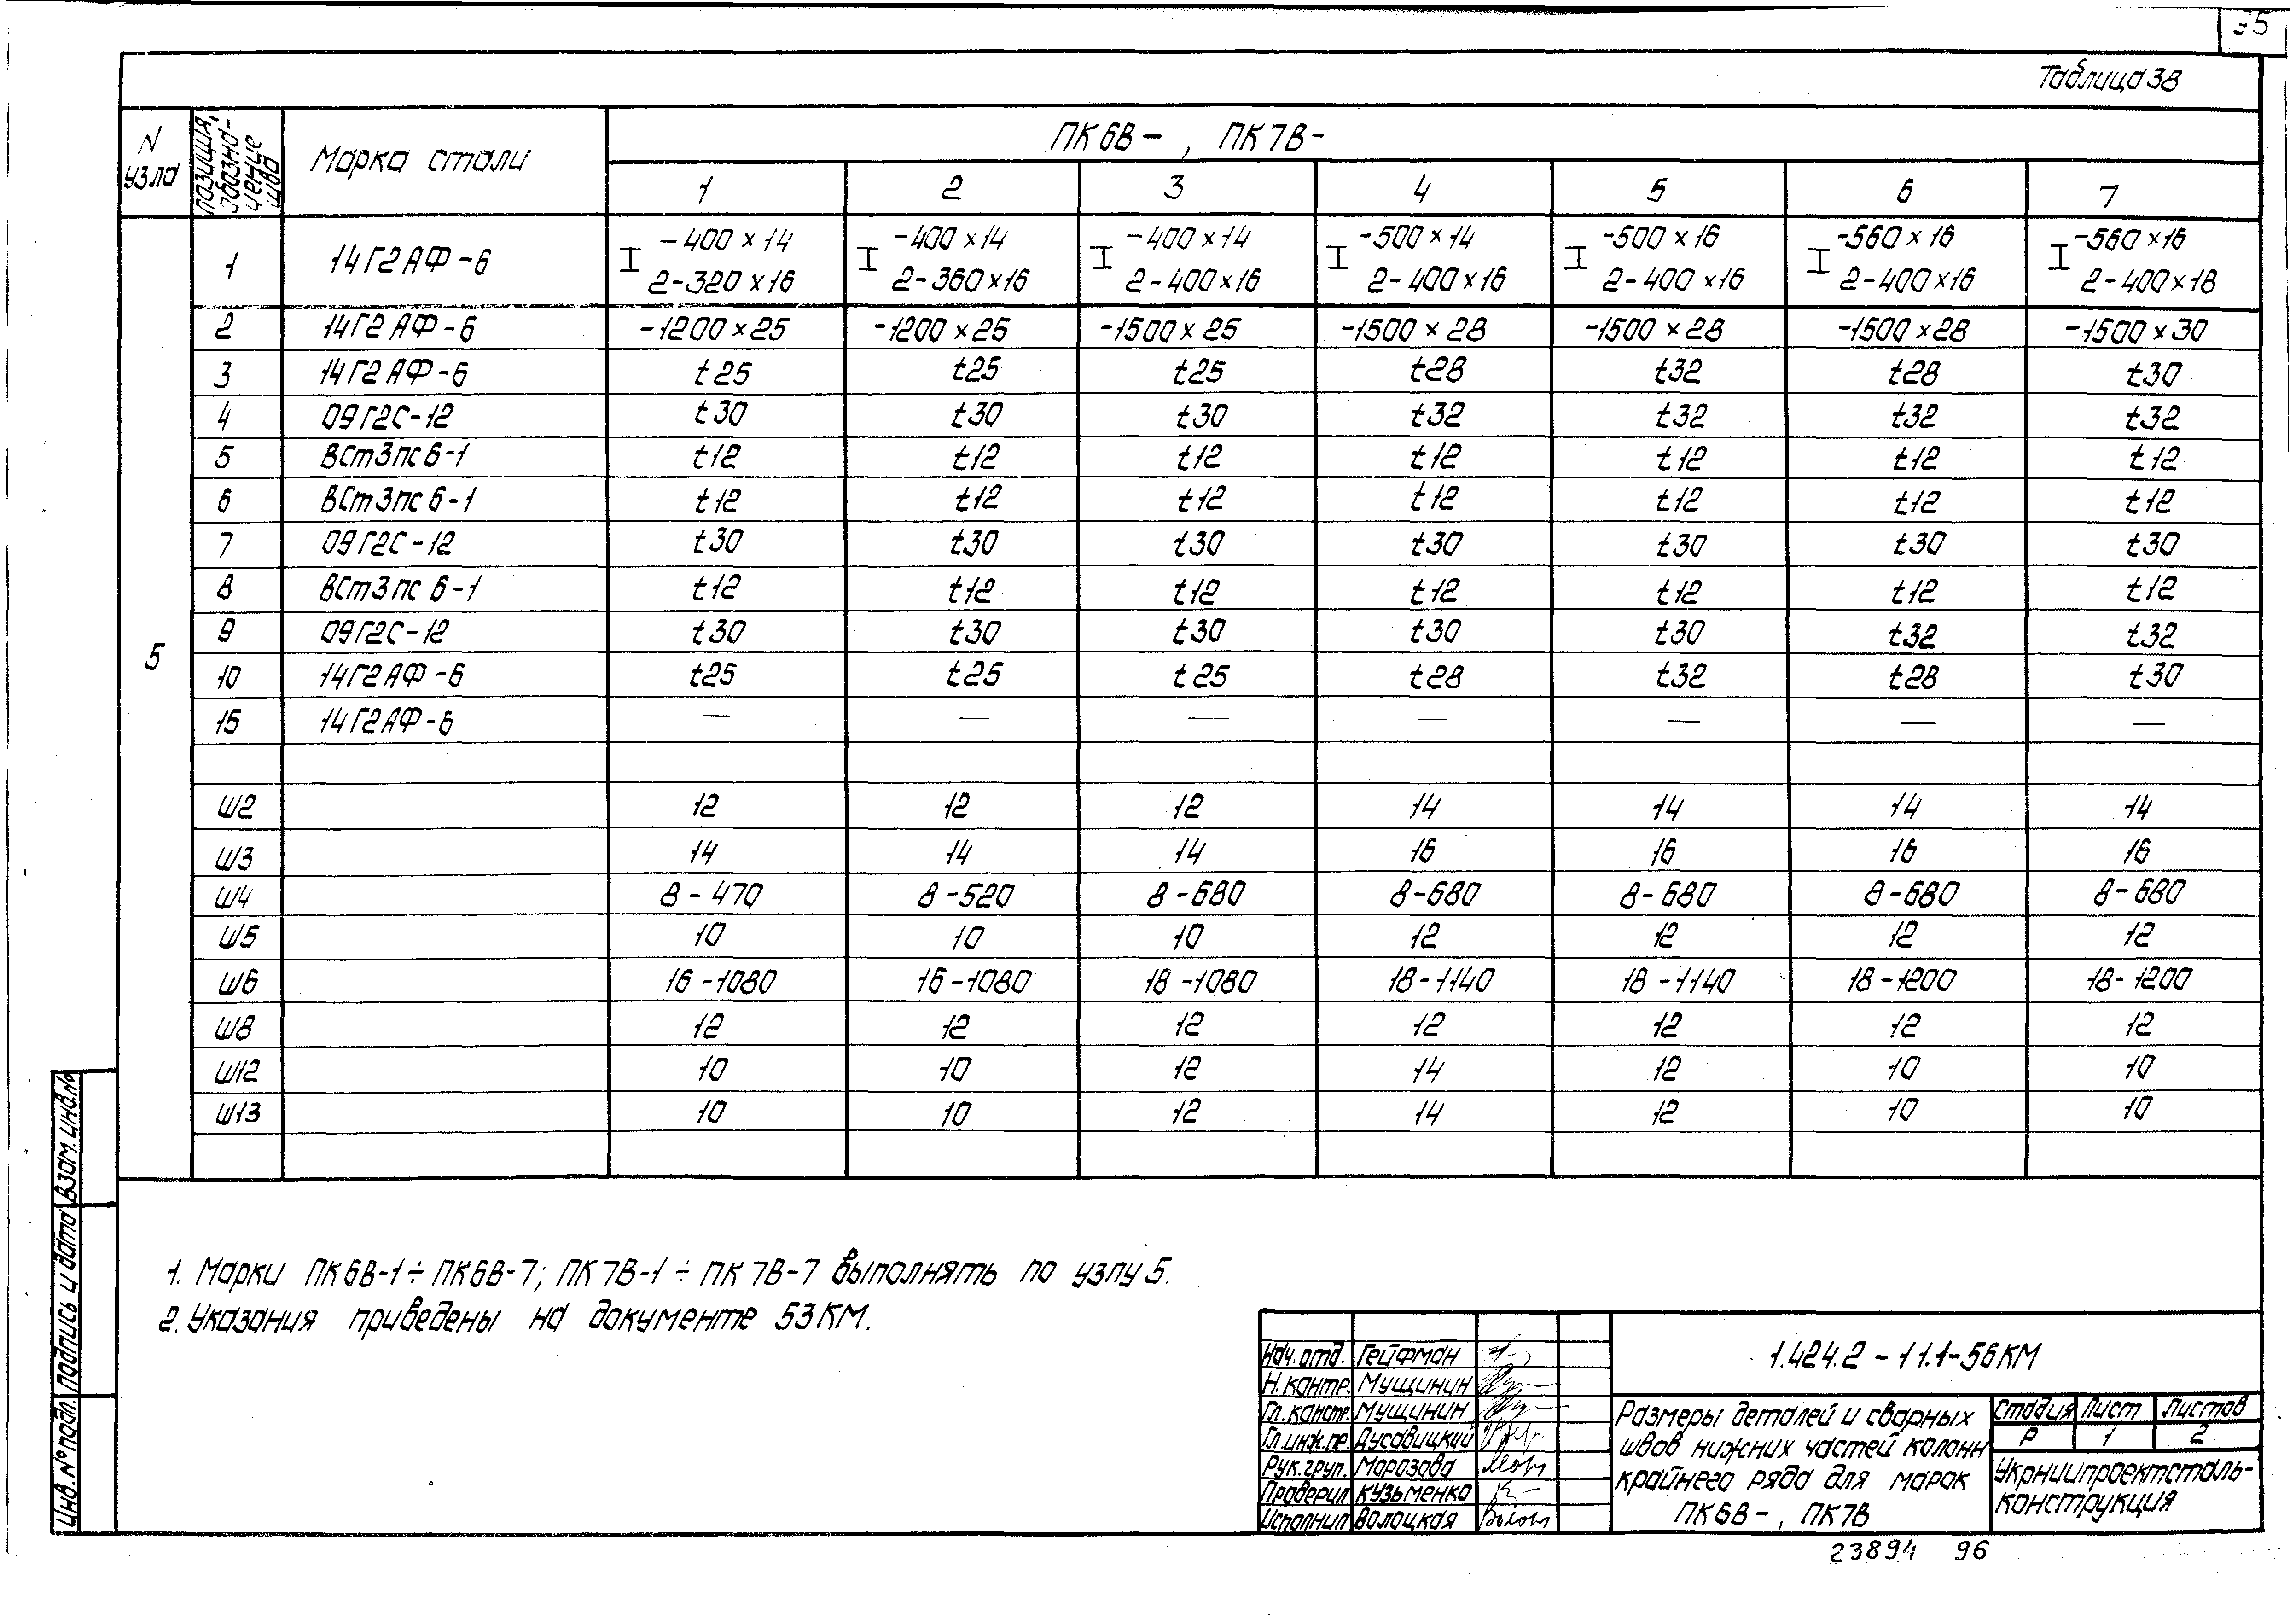 95
Таблица 38
N узла | позиция, обозна-чение шва | Марка стали | ПК6В– , ПК7В–
1 | 2 | 3 | 4 | 5 | 6 | 7
5
1 | 14Г2АФ-6 | I -400×14 2-320×16 | I -400×14 2-360×16 | I -400×14 2-400×16 | I -500×14 2-400×16 | I -500×16 2-400×16 | I -560×16 2-400×16 | I -560×16 2-400×18
2 | 14Г2АФ-6 | -1200×25 | -1200×25 | -1500×25 | -1500×28 | -1500×28 | -1500×28 | -1500×30
3 | 14Г2АФ-6 | t25 | t25 | t25 | t28 | t32 | t28 | t30
4 | 09Г2С-12 | t30 | t30 | t30 | t32 | t32 | t32 | t32
5 | ВСт3пс6-1 | t12 | t12 | t12 | t12 | t12 | t12 | t12
6 | ВСт3пс6-1 | t12 | t12 | t12 | t12 | t12 | t12 | t12
7 | 09Г2С-12 | t30 | t30 | t30 | t30 | t30 | t30 | t30
8 | ВСт3пс6-1 | t12 | t12 | t12 | t12 | t12 | t12 | t12
9 | 09Г2С-12 | t30 | t30 | t30 | t30 | t30 | t32 | t32
10 | 14Г2АФ-6 | t25 | t25 | t25 | t28 | t32 | t28 | t30
15 | 14Г2АФ-6 | — | — | — | — | — | — | —
Ш2 | 12 | 12 | 12 | 14 | 14 | 14 | 14
Ш3 | 14 | 14 | 14 | 16 | 16 | 16 | 16
Ш4 | 8-470 | 8-520 | 8-680 | 8-680 | 8-680 | 8-680 | 8-680
Ш5 | 10 | 10 | 10 | 12 | 12 | 12 | 12
Ш6 | 16-1080 | 16-1080 | 18-1080 | 18-1140 | 18-1140 | 18-1200 | 18-1200
Ш8 | 12 | 12 | 12 | 12 | 12 | 12 | 12
Ш12 | 10 | 10 | 12 | 14 | 12 | 10 | 10
Ш13 | 10 | 10 | 12 | 14 | 12 | 10 | 10
1. Марки ПК6В-1÷ПК6В-7; ПК7В-1÷ПК7В-7 выполнять по узлу 5.
2. Указания приведены на документе 53КМ.
Инв.№подл. Подпись и дата Взам.инв.№
Нач.отд. Гейфман
Н.контр. Мущинин
Гл.констр. Мущинин
Гл.инж.пр. Дусавицкий
Рук.груп. Морозова
Проверил Кузьменко
Исполнил Волоцкая
1.424.2-11.1-56КМ
Размеры деталей и сварных
швов нижних частей колонн
крайнего ряда для марок
ПК6В–, ПК7В
Стадия Лист Листов
Р 1 2
Укрниипроектсталь-
конструкция
23894 96